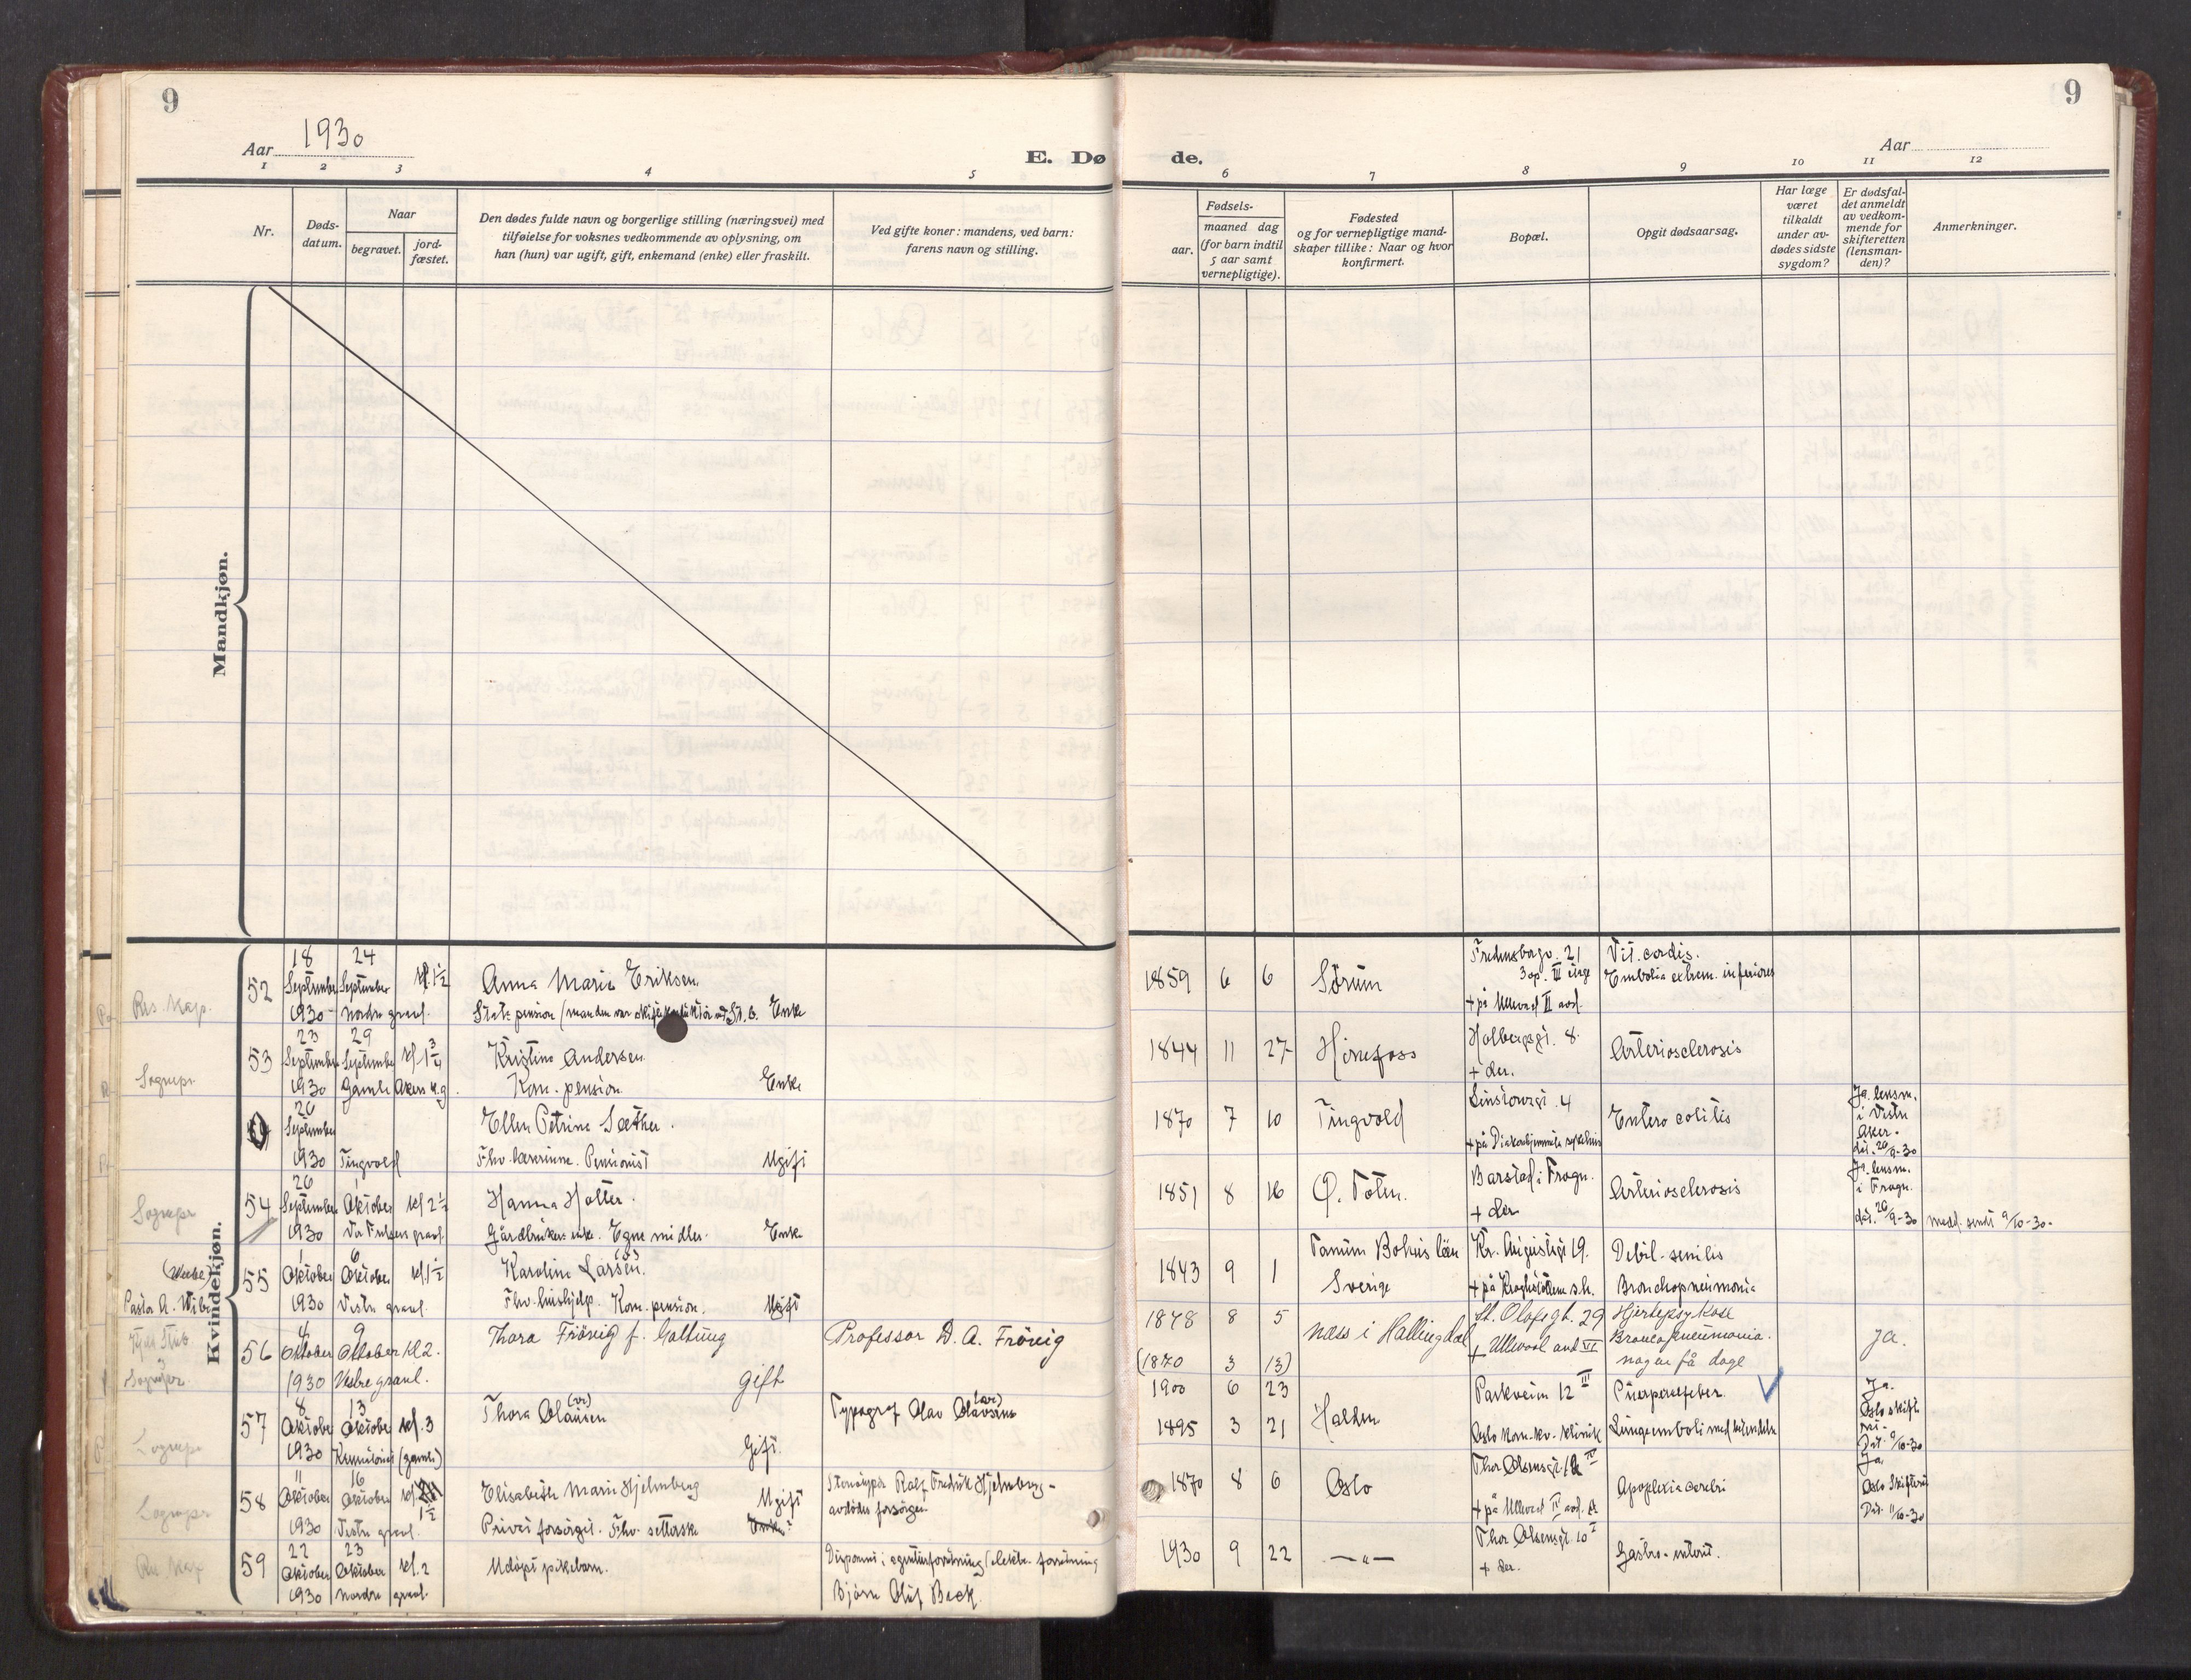 9
9
Aar 1930
E. Dø
de.
Aar
1 2 3 4 5
6 7 8 9 10 11 12
Nr.
Døds-
datum.
Naar
begravet.
jord-
fæstet.
Den dødes fulde navn og borgerlige stilling (næringsvei) med
tilføielse for voksnes vedkommende av oplysning, om
han (hun) var ugift, gift, enkemand (enke) eller fraskilt.
Ved gifte koner: mandens, ved barn:
farens navn og stilling.
Fødsels-
aar.
maaned dag
(for barn indtil
5 aar samt
vernepligtige).
Fødested
og for vernepligtige mand-
skaper tillike: Naar og hvor
konfirmert.
Bopæl.
Opgit dødsaarsag.
Har læge
været
tilkaldt
under av-
dødes sidste
sygdom?
Er dødsfal-
det anmeldt
av vedkom-
mende for
skifteretten
(lensman-
den)?
Anmerkninger.
Mandkjøn.
Kvindekjøn.
Res. Kap.
52
18 September 1930
24 September Nordre gravl.
kl. 1½
Anna Marie Eriksen
Stats pension Enke
1859 6 6
Sørum
Fredensborgv. 21
3 op. III
+ på Ullevaal II avd.
Vit. cordis.
Embolia extrem. inferiores
Sognepr.
53
23 September 1930
29 September Gamle Akers k.g.
kl. 1¾
Kristine Andersen
Kom. pension Enke
1844 11 27
Hønefoss
Holbergsgt. 8.
+ der.
Arteriosclerosis
0
26 September 1930
Tingvold
Ellen Petrine Sæther.
Fhv. lærerinne. Pensionist Ugift
1870 7 10
Tingvold
Linstowsgt. 4
+ på Diakonhjemmets sykehus
Entero colitis
Ja. lensm.
i Vestre
Aker.
dat. 26/9-30
Sognepr.
54
26 September 1930
1 Oktober Vor Frelsers gravl.
kl 2½
Hanna Holter.
Gårdbruker enke. Egne midler. Enke
1851 8 16
Ø. Toten.
Barstad i Frogn.
+ der
Arteriosclerosis
Ja. lensm.
i Frogn.
dat. 26/9-30
medd. sendt 9/10-30.
(Weebe)
Pastor A. Wibe
55
1 Oktober 1930
6 Oktober Vestre gravl.
kl. 1½
Karoline Larsen.
Fhv. hushjelp. Kom. pension. Ugift
1843 9 1
Tanum Bohus län
Sverige
Kr. Augustsgt 19.
+ på Krohgstøtten s.h.
Debil. senilis
Bronchopneumonia
Sognepr.
56
4 Oktober 1930
9 Oktober Vestre gravl.
kl 2.
Thora Frövig f. Galtung
gift
Professor D. A. Frövig
1878 8 5
(1870 3 13)
Næss i Hallingdal
St. Olafsgt. 29
+ Ullevaal avd VI
Hjertepsykose
Broncopneumonia.
nogen få dage
Ja.
Sognepr
57
8 Oktober 1930
13 Oktober Krematoriet (gamle)
kl. 3
Thora Olausen (vs)
Gift.
Typograf Olav Olavsens (av)
1900 6 23
1895 3 21
Halden
Parkveien 12 III
Oslo kom. kv. klinik
Puerperalfeber.
Lungeemboli med
Ja.
Oslo skifte
ret.
Dat. 9/10-30
Sognepr
58
11 Oktober 1930
16 Oktober Vestre gravl.
kl. 1½
Elisabeth Marie Hjelmberg Ugift
Privat forsörget. Fhv. setterske
Stenotypør Ralf Fredrik Hjelmberg -
avdødes forsørger
1870 8 6
Oslo
Thor Olsensgt. 12 IV
+ på Ullevaal IV avd.
Apoplexia cerebri
Ja
Oslo Skifteret
Dat. 11/10-30
Res. Kap
59
22 Oktober 1930
23 Oktober Nordre gravl.
kl. 2
Udöpt pikebarn.
Disponent i agenturforretning (elektr. forretning)
Bjørn Oluf Beck.
1930 9 22
— „ —
Thor Olsensgt. 10 I
+ der.
Gastro-enterit.